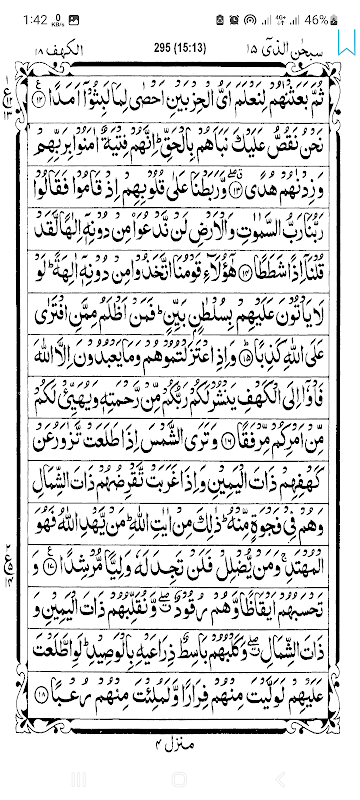 1:42 0 KB/s 4G 46%
الكهف ١٨ 295 (15:13) سبحن الذي ١٥
ثُمَّ بَعَثْنٰهُمْ لِنَعْلَمَ اَىُّ الْحِزْبَيْنِ اَحْصٰى لِمَا لَبِثُوْۤا اَمَدًا ﴿۱۲﴾
نَحْنُ نَقُصُّ عَلَيْكَ نَبَاَهُمْ بِالْحَقِّ ؕ اِنَّهُمْ فِتْيَةٌ اٰمَنُوْا بِرَبِّهِمْ
وَزِدْنٰهُمْ هُدًى ﴿۱۳﴾ وَّرَبَطْنَا عَلٰى قُلُوْبِهِمْ اِذْ قَامُوْا فَقَالُوْا
رَبُّنَا رَبُّ السَّمٰوٰتِ وَالْاَرْضِ لَنْ نَّدْعُوَا۟ مِنْ دُوْنِهٖۤ اِلٰهًا لَّقَدْ
قُلْنَاۤ اِذًا شَطَطًا ﴿۱۴﴾ هٰۤؤُلَآءِ قَوْمُنَا اتَّخَذُوْا مِنْ دُوْنِهٖۤ اٰلِهَةً ؕ لَوْ
لَا يَاْتُوْنَ عَلَيْهِمْ بِسُلْطٰنٍۭ بَيِّنٍ ؕ فَمَنْ اَظْلَمُ مِمَّنِ افْتَرٰى
عَلَى اللّٰهِ كَذِبًا ﴿۱۵﴾ وَاِذِ اعْتَزَلْتُمُوْهُمْ وَمَا يَعْبُدُوْنَ اِلَّا اللّٰهَ
فَاْوٗۤا اِلَى الْكَهْفِ يَنْشُرْ لَكُمْ رَبُّكُمْ مِّنْ رَّحْمَتِهٖ وَيُهَيِّئْ لَكُمْ
مِّنْ اَمْرِكُمْ مِّرْفَقًا ﴿۱۶﴾ وَتَرَى الشَّمْسَ اِذَا طَلَعَتْ تَّزٰوَرُ عَنْ
كَهْفِهِمْ ذَاتَ الْيَمِيْنِ وَاِذَا غَرَبَتْ تَّقْرِضُهُمْ ذَاتَ الشِّمَالِ
وَهُمْ فِىْ فَجْوَةٍ مِّنْهُ ؕ ذٰلِكَ مِنْ اٰيٰتِ اللّٰهِ ؕ مَنْ يَّهْدِ اللّٰهُ فَهُوَ
الْمُهْتَدِ ۚ وَمَنْ يُّضْلِلْ فَلَنْ تَجِدَ لَهٗ وَلِيًّا مُّرْشِدًا ﴿۱۷﴾ وَ
تَحْسَبُهُمْ اَيْقَاظًا وَّهُمْ رُقُوْدٌ ۖ وَّنُقَلِّبُهُمْ ذَاتَ الْيَمِيْنِ وَ
ذَاتَ الشِّمَالِ ۖ وَكَلْبُهُمْ بَاسِطٌ ذِرَاعَيْهِ بِالْوَصِيْدِ ؕ لَوِ اطَّلَعْتَ
عَلَيْهِمْ لَوَلَّيْتَ مِنْهُمْ فِرَارًا وَّلَمُلِئْتَ مِنْهُمْ رُعْبًا ﴿۱۸﴾
منزل ۴